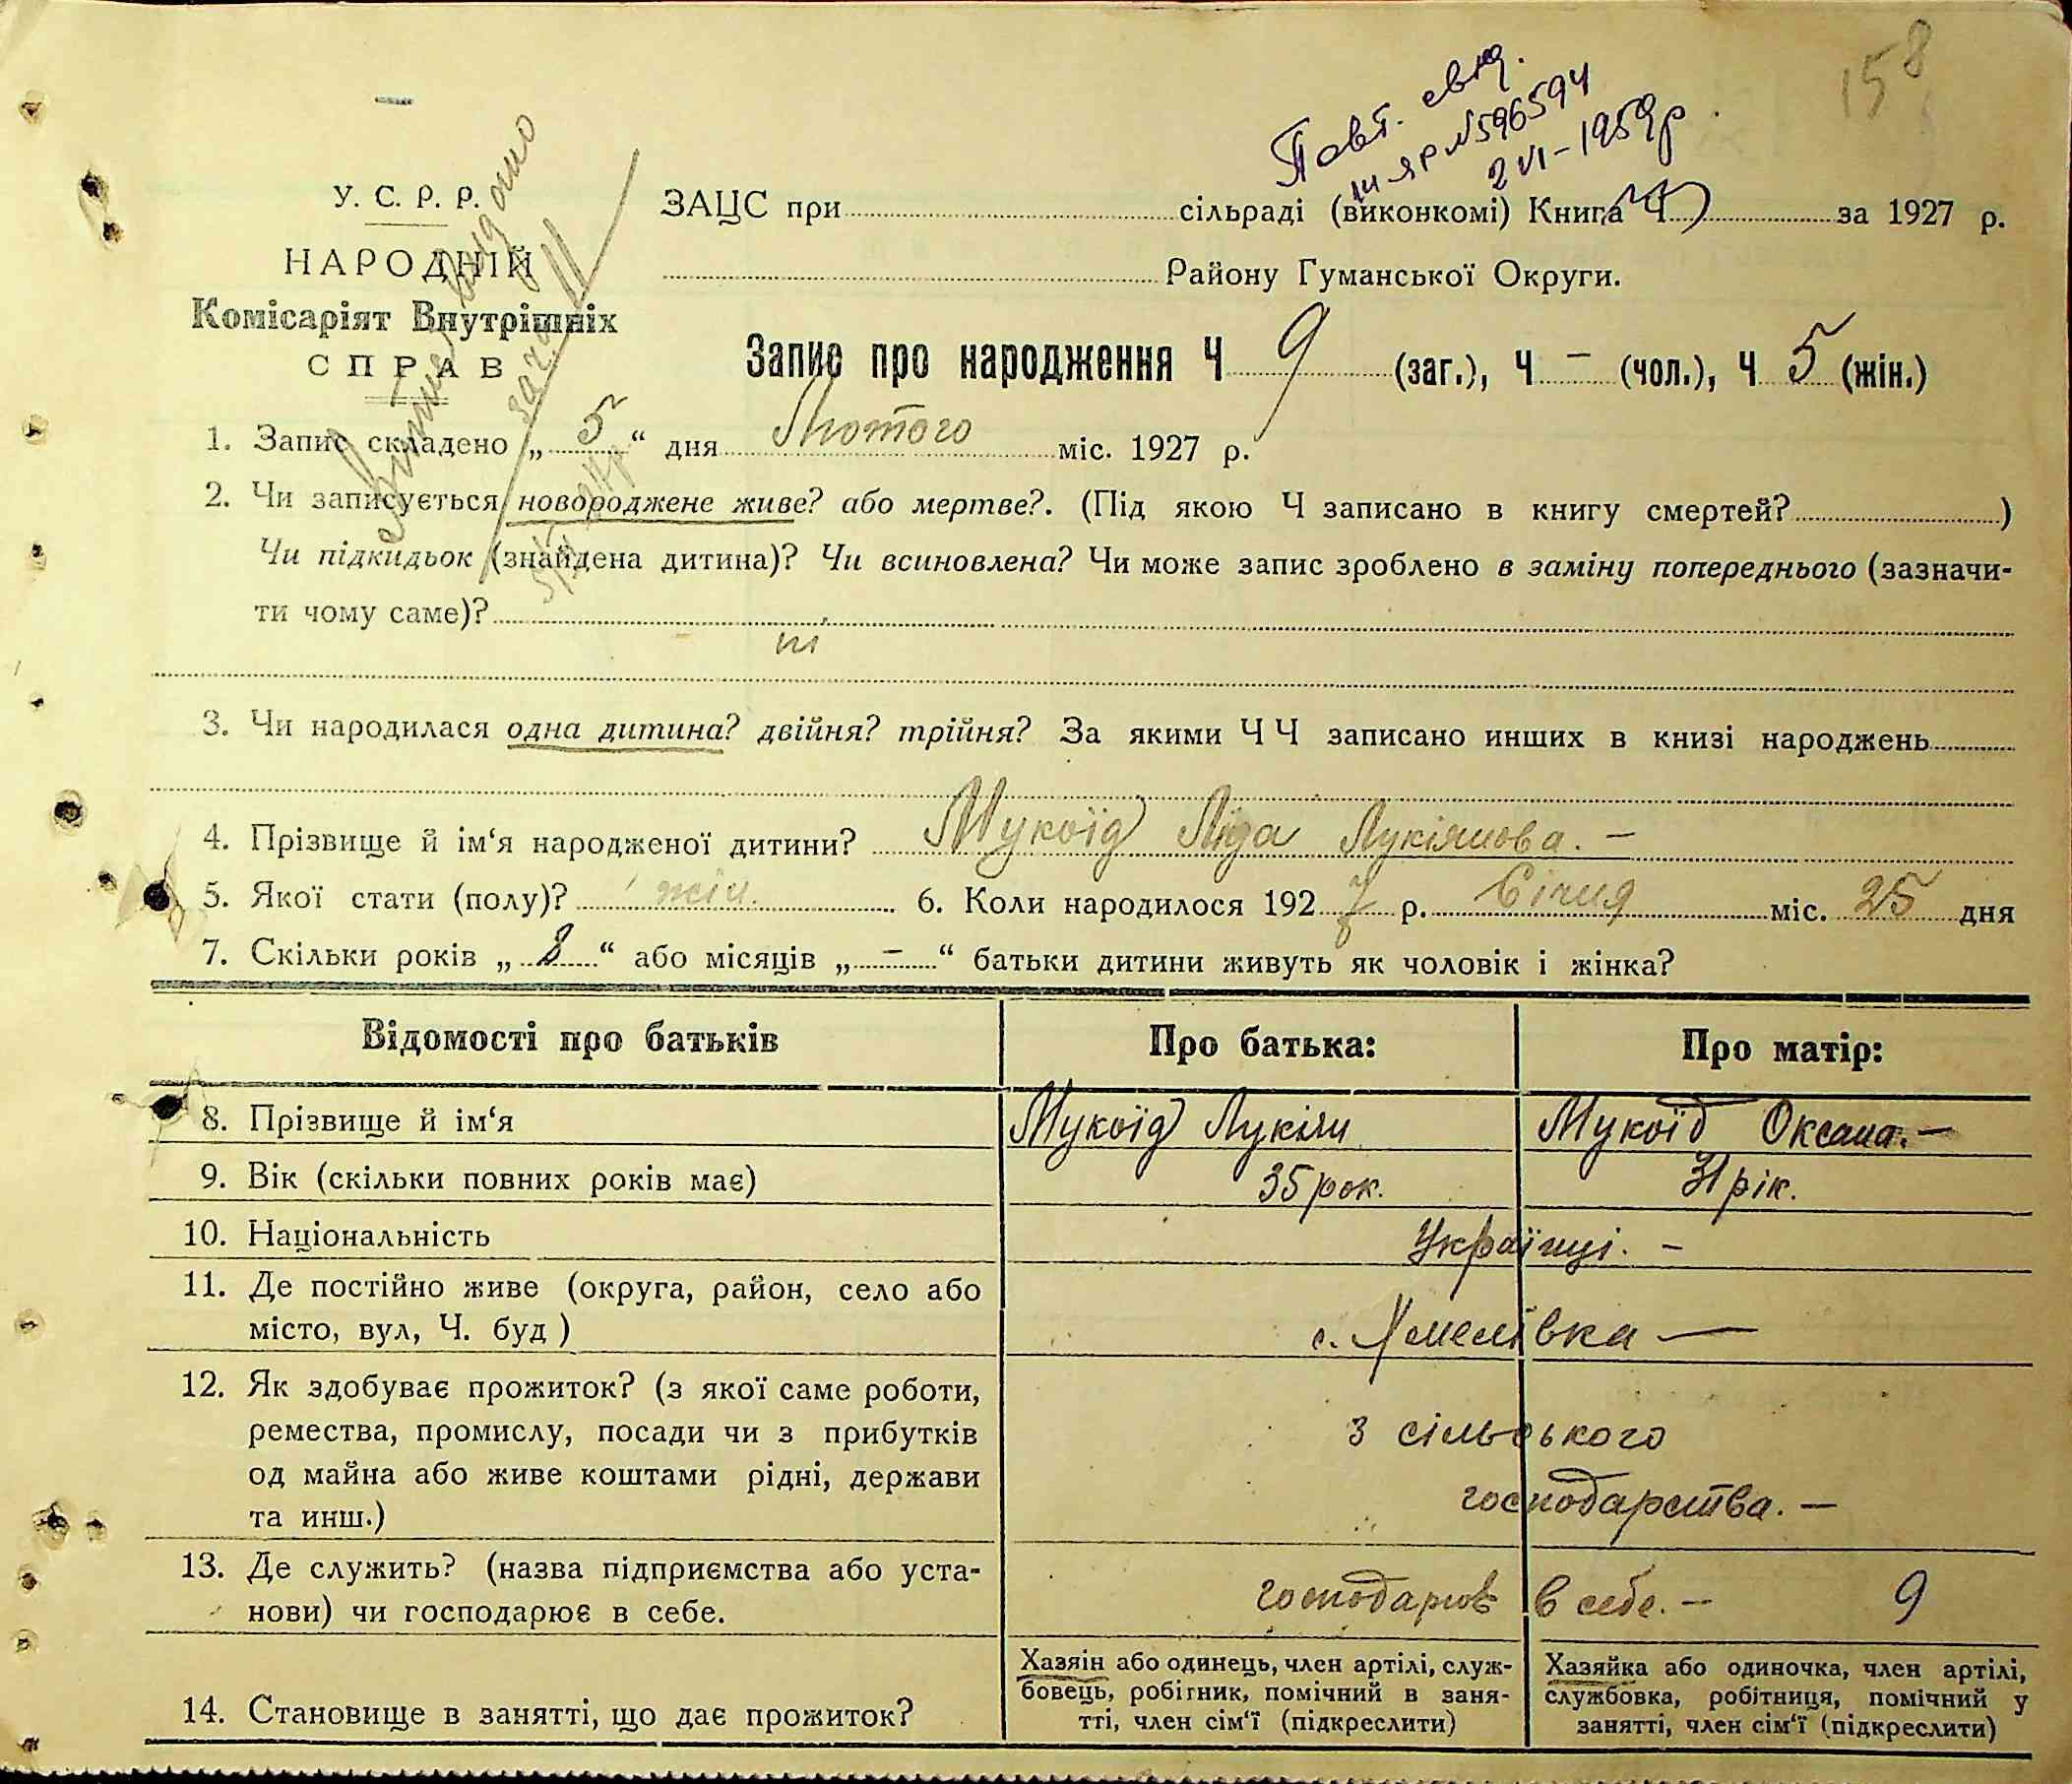 158
Повт. свід.
ЯР №596594
2 VI - 1959р.
У. С. Р. Р.
НАРОДНІЙ
Комісаріят Внутрішніх
СПРАВ
ЗАЦС при сільраді (виконкомі) Книга Ч за 1927 р.
Району Гуманської Округи.
Запис про народження Ч 9 (заг.), Ч – (чол.), Ч 5 (жін.)
1. Запис складено „ 5 “ дня Лютого міс. 1927 р.
2. Чи записується новороджене живе? або мертве?. (Під якою Ч записано в книгу смертей? )
Чи підкидьок (знайдена дитина)? Чи всиновлена? Чи може запис зроблено в заміну попереднього (зазначи-
ти чому саме)?
ні
3. Чи народилася одна дитина? двійня? трійня? За якими Ч Ч записано инших в книзі народжень
4. Прізвище й ім‘я народженої дитини? Мукоїд Ліда Лукіянова. –
5. Якої стати (полу)? жін. 6. Коли народилося 1927 р. Січня міс. 25 дня
7. Скільки років „ 8 “ або місяців „ – “ батьки дитини живуть як чоловік і жінка?
Відомості про батьків Про батька: Про матір:
8. Прізвище й ім‘я Мукоїд Лукіян Мукоїд Оксана. –
9. Вік (скільки повних років має) 35 рок. 31 рік.
10. Національність Українці. –
11. Де постійно живе (округа, район, село або
місто, вул, Ч. буд ) с. –
12. Як здобуває прожиток? (з якої саме роботи,
ремества, промислу, посади чи з прибутків
од майна або живе коштами рідні, держави
та инш.)
з сільського
господарства. –
13. Де служить? (назва підприємства або уста-
нови) чи господарює в себе. господарює в себе. – 9
14. Становище в занятті, що дає прожиток?
Хазяін або одинець, член артілі, служ-
бовець, робігник, помічний в заня-
тті, член сім‘ї (підкреслити)
Хазяйка або одиночка, член артілі,
службовка, робітниця, помічний у
занятті, член сім‘ї (підкреслити)